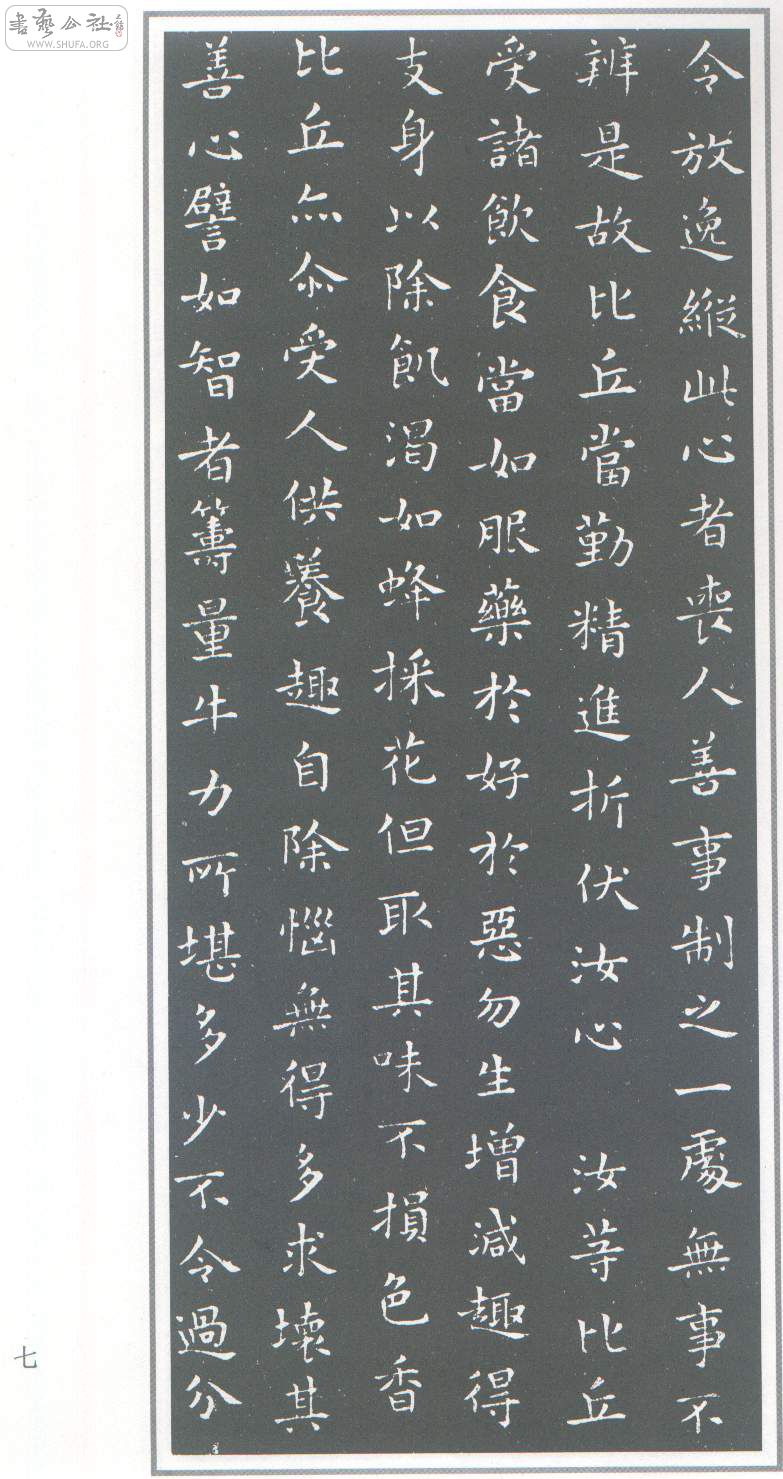 書藝公社
WWW.SHUFA.ORG
令放逸縱此心者喪人善事制之一處無事不
辨是故比丘當勤精進折伏汝心 汝等比丘
受諸飲食當如服藥於好於惡勿生增減趣得
支身以除飢渴如蜂採花但取其味不損色香
比丘亦尒受人供養趣自除惱無得多求壞其
善心譬如智者籌量牛力所堪多少不令過分
七